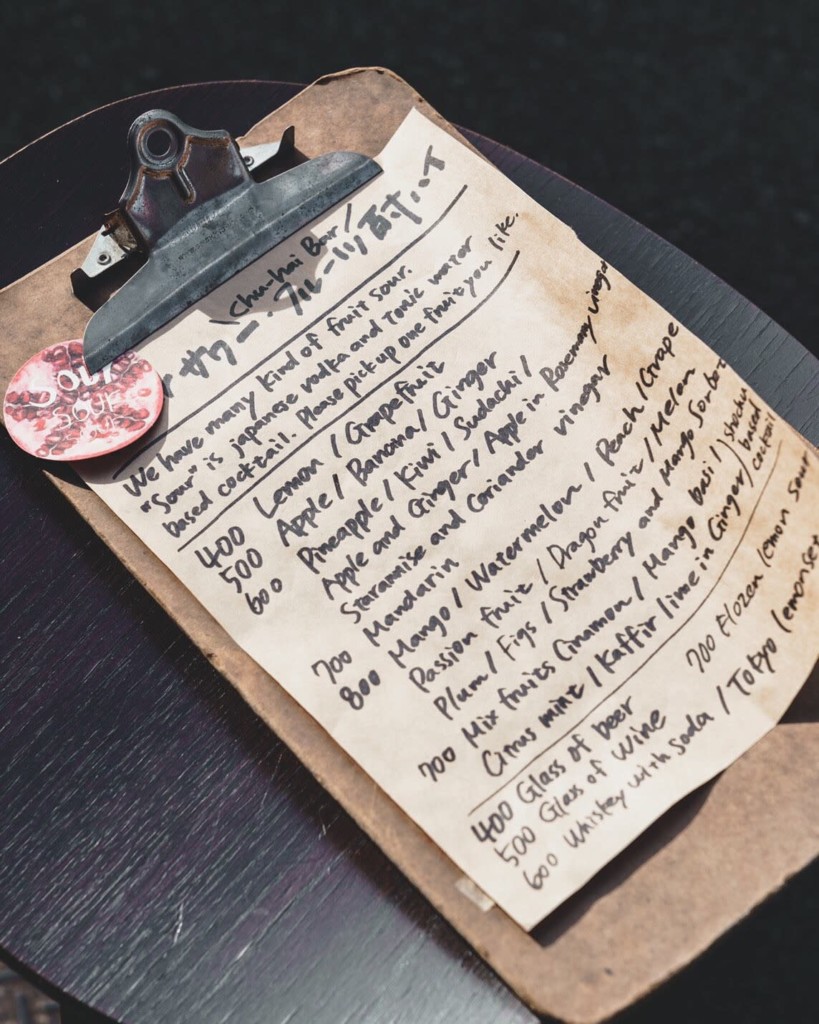 Chu-hai Bar/
サワー・フルーツ
We have many kind of fruit sour.
"Sour" is japanese vodka and tonic water
based cocktail. Please pick up one fruit you like.
400 Lemon / Grapefruit
500 Apple / Banana / Ginger
600 Pineapple / Kiwi / Sudachi /
Apple and Ginger / Apple in Rosemary vinegar
Staranise and Coriander vinegar
Mandarin
700 Mango / Watermelon / Peach / Grape
800 Passion fruit / Dragon fruit / Melon
Plum / Figs / Strawberry and Mango Sorbet
700 Mix fruits Cinamon / Mango basi / shochu
Citrus mint / Kaffir lime in Ginger based
cocktail
400 Glass of beer 700 Flozen lemon sour
500 Glass of Wine
600 Whiskey with soda / Tokyo lemonset
SOUR